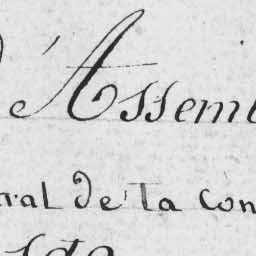 d'Assem
ral de la con